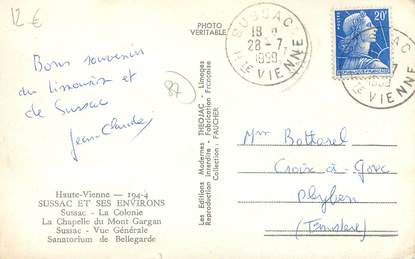 12 €
Bons souvenirs
du limousin et
de Sussac
Jean-Claude
87
Haute-Vienne — 194-4
SUSSAC ET SES ENVIRONS
Sussac - La Colonie
La Chapelle du Mont Gargan
Sussac - Vue Générale
Sanatorium de Bellegarde
PHOTO
VERITABLE
Les Editions Modernes THEOJAC - Limoges
Reproduction Interdite - Fabrication Française
Collection : FAUCHER
SUSSAC
18 H
28-7
1959
Hte VIENNE
20F
Hte VIENNE
Mme Bottorel
Croix à
Pleyben
(Finistère)